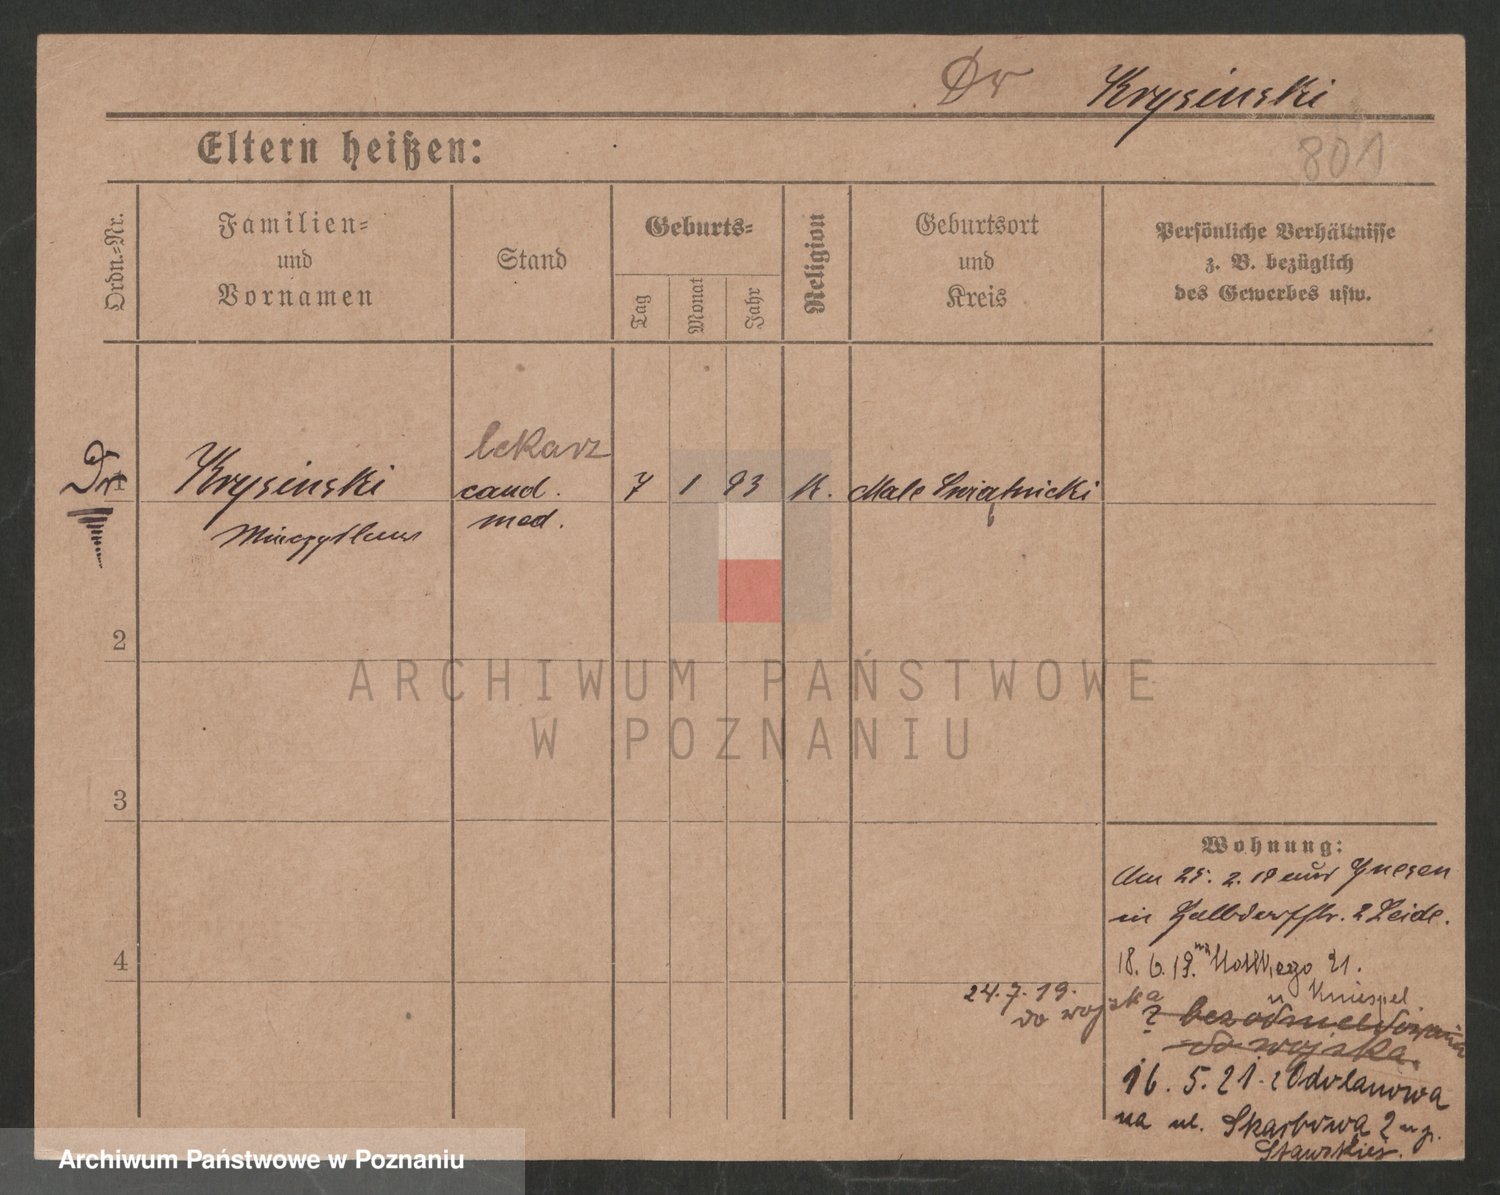 Dr Krysinski
801
Eltern heißen:
Ordn.-Nr.
Familien- und Vornamen
Stand
Geburts-
Tag
Monat
Jahr
Religion
Geburtsort und Kreis
Persönliche Verhältnisse
z. B. bezüglich
des Gewerbes usw.
lekarz
Dr 1 Krysinski cand. 7 1 93 K. Male Swiątnicki
med.
2
ARCHIWUM PAŃSTWOWE
W POZNANIU
3
Wohnung:
Am 25. 2. 19 aus Gnesen
in 2 Zeide.
4
18. 6. 19. 21.
24. 7. 19.
do wojska
u Kniespel
do wojska.
16. 5. 21. z Odolanowa
na ul. Skarbowa 2
Archiwum Państwowe w Poznaniu